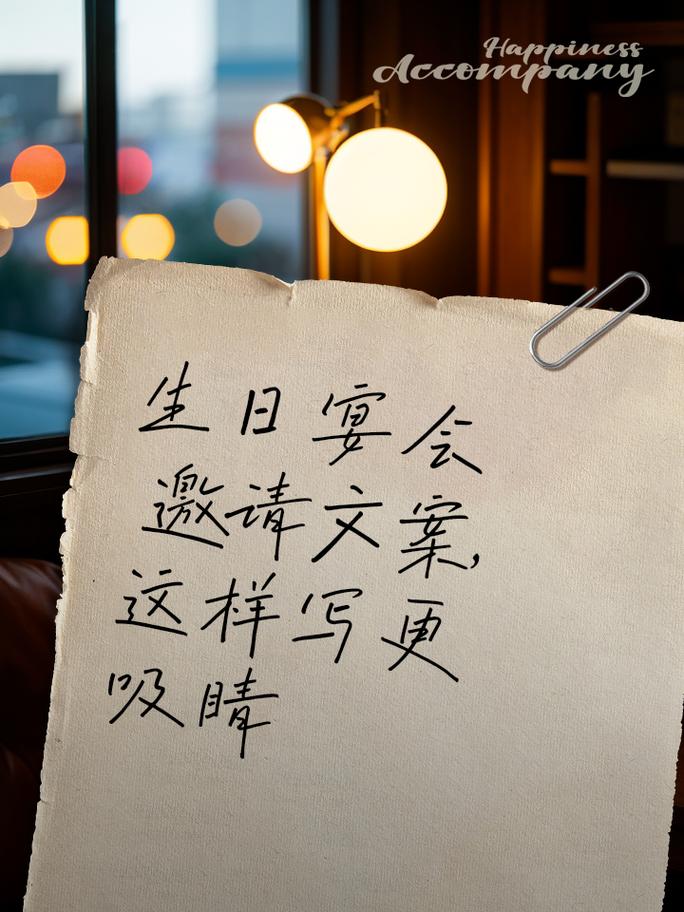 Happiness
Accompany
生日宴会
邀请文案,
这样写更
吸睛